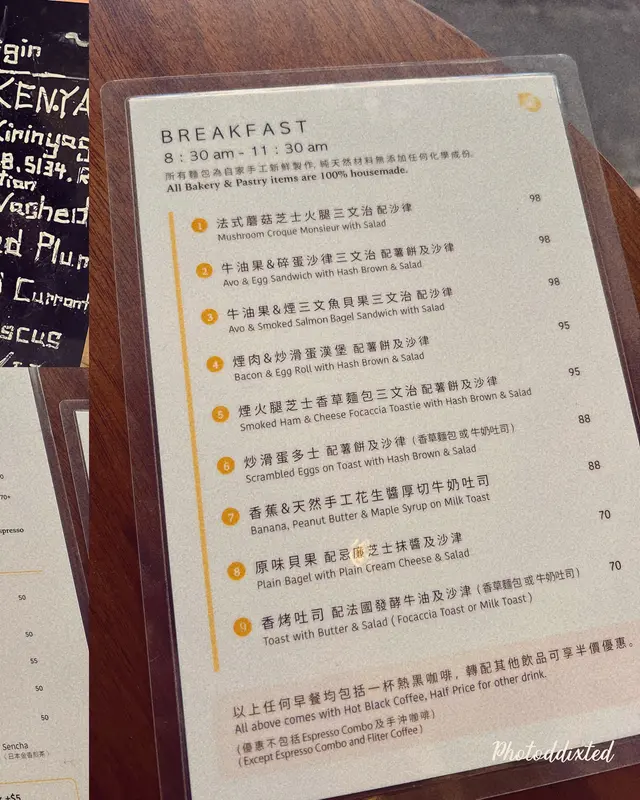 gin
KENYA
Kirinyag
B.5134.R
tian
Washed
ed Plum
Current
iscus
70+
spresso
50
50
55
50
50
Sencha
(日本金香煎茶)
+$5
BREAKFAST
8 : 30 am - 11 : 30 am
所有麵包為自家手工新鮮製作, 純天然材料無添加任何化學成份.
All Bakery & Pastry items are 100% housemade.
1 法式蘑菇芝士火腿三文治 配沙律 98
Mushroom Croque Monsieur with Salad
2 牛油果&碎蛋沙律三文治 配薯餅及沙律 98
Avo & Egg Sandwich with Hash Brown & Salad
3 牛油果&煙三文魚貝果三文治 配沙律 98
Avo & Smoked Salmon Bagel Sandwich with Salad
4 煙肉&炒滑蛋漢堡 配薯餅及沙律 95
Bacon & Egg Roll with Hash Brown & Salad
5 煙火腿芝士香草麵包三文治 配薯餅及沙律 95
Smoked Ham & Cheese Focaccia Toastie with Hash Brown & Salad
6 炒滑蛋多士 配薯餅及沙律 (香草麵包 或 牛奶吐司) 88
Scrambled Eggs on Toast with Hash Brown & Salad
7 香蕉&天然手工花生醬厚切牛奶吐司 88
Banana, Peanut Butter & Maple Syrup on Milk Toast
8 原味貝果 配忌廉芝士抹醬及沙津 70
Plain Bagel with Plain Cream Cheese & Salad
9 香烤吐司 配法國發酵牛油及沙津 (香草麵包 或 牛奶吐司) 70
Toast with Butter & Salad ( Focaccia Toast or Milk Toast )
以上任何早餐均包括一杯熱黑咖啡, 轉配其他飲品可享半價優惠。
All above comes with Hot Black Coffee, Half Price for other drink.
(優惠不包括 Espresso Combo 及 手沖咖啡)
(Except Espresso Combo and Fliter Coffee )
Photoddixted